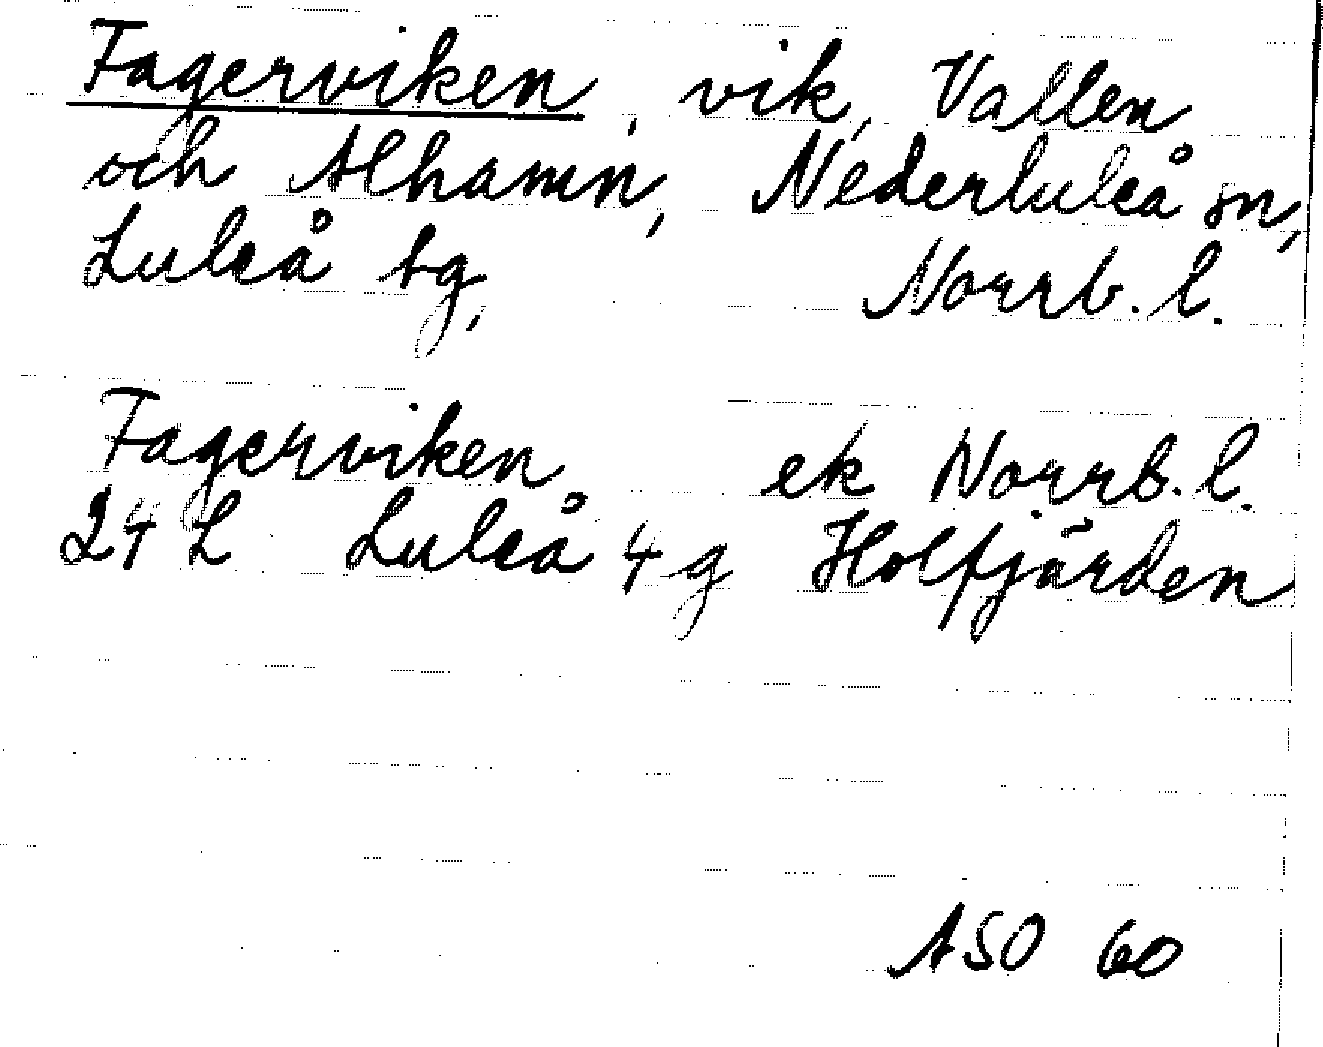 Fagerviken, vik, Vallen
och Alhamn, Nederluleå sn,
Luleå tg, Norrb. l.
Fagerviken ek Norrb. l.
24 L Luleå 4 g Holfjärden
ASO 60